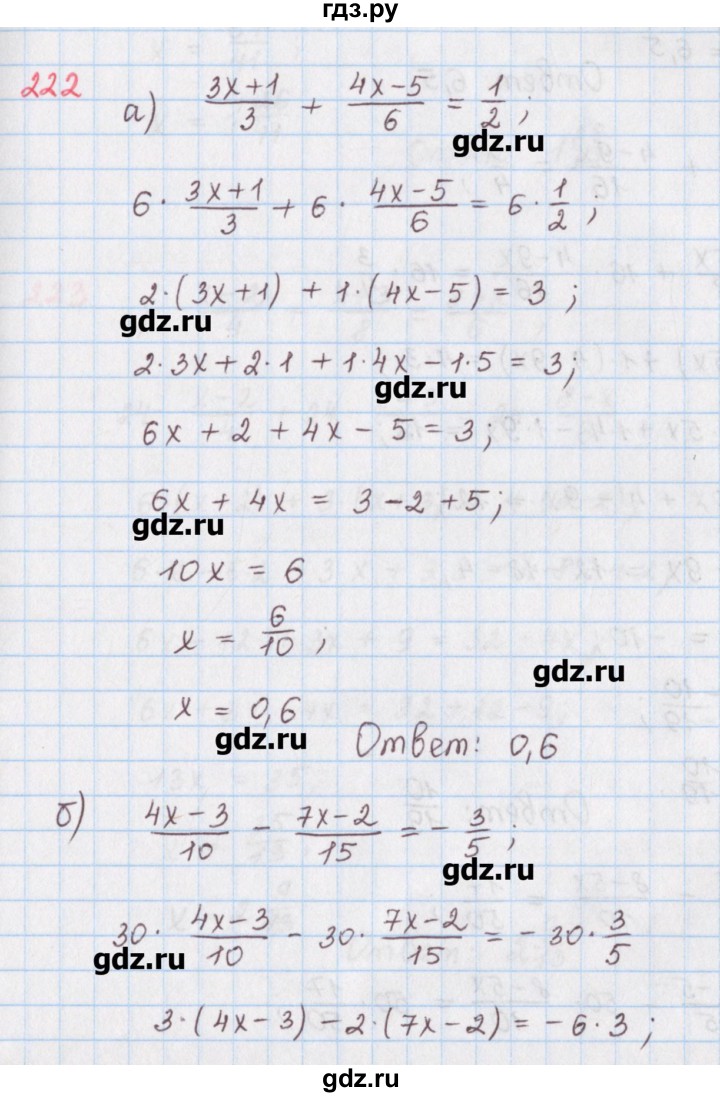 гдз.ру
222
а) (3x+1)/3 + (4x-5)/6 = 1/2 ;
gdz.ru
6 · (3x+1)/3 + 6 · (4x-5)/6 = 6 · 1/2 ;
2·(3x+1) + 1·(4x-5) = 3 ;
gdz.ru
2·3x+2·1+1·4x-1·5=3;
gdz.ru
6x+2+4x-5=3;
6x+4x = 3-2+5;
gdz.ru
10x = 6
x = 6/10 ;
gdz.ru
x = 0,6
gdz.ru
Ответ: 0,6
б) (4x-3)/10 - (7x-2)/15 = - 3/5 ;
gdz.ru
30 · (4x-3)/10 - 30 · (7x-2)/15 = - 30 · 3/5
gdz.ru
3·(4x-3)-2·(7x-2)=-6·3;
gdz.ru